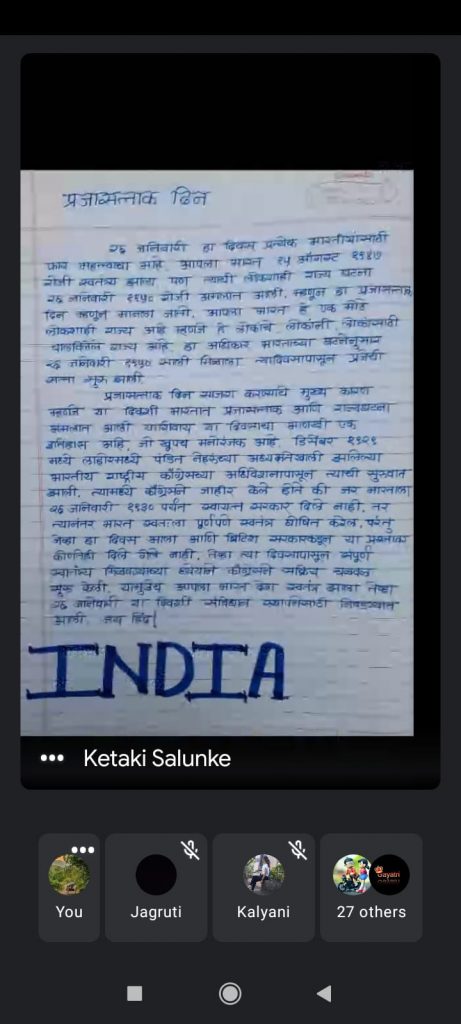 प्रजासत्ताक दिन
२६ जानेवारी हा दिवस प्रत्येक भारतीयांसाठी
फार महत्त्वाचा आहे. आपला भारत १५ ऑगस्ट १९४७
रोजी स्वतंत्र झाला पण त्याची लोकशाही राज्य घटना
२६ जानेवारी १९५० रोजी अंमलात आली. म्हणून हा प्रजासत्ताक
दिन म्हणून मानला जातो. आपला भारत हे एक मोठे
लोकशाही राज्य आहे म्हणजे हे लोकांचे लोकांनी लोकांसाठी
राज्य आहे. हा अधिकार भारताच्या घटनेनुसार
२६ जानेवारी १९५० साली मिळाला त्यादिवसापासून प्रजेची
सत्ता सुरू झाली.
प्रजासत्ताक दिन साजरा करण्याचे मुख्य कारण
म्हणजे या दिवशी भारतात प्रजासत्ताक आणि राज्यघटना
अंमलात आली याशिवाय या दिवसाचा आणखी एक
इतिहास आहे. जो खुपच मनोरंजक आहे. डिसेंबर १९२९
मध्ये लाहोरमध्ये पंडित नेहरूंच्या अध्यक्षतेखाली झालेल्या
भारतीय राष्ट्रीय काँग्रेसच्या अधिवेशनापासून त्याची सुरुवात
झाली. त्यामध्ये काँग्रेसने जाहीर केले होते की जर भारताला
२६ जानेवारी १९३० पर्यंत स्वायत्त सरकार दिले नाही. तर
त्यानंतर भारत स्वतःला पूर्णपणे स्वतंत्र घोषित करेल. परंतु
जेव्हा हा दिवस आला आणि ब्रिटिश सरकारकडून या
कोणतेही दिले गेले नाही. तेव्हा त्या दिवसापासून संपूर्ण
स्वातंत्र्य मिळवण्याच्या ध्येयाने काँग्रेसने सक्रिय चळवळ
सुरू केली. यामुळेच आपला भारत देश स्वतंत्र झाला तेव्हा
२६ जानेवारी या दिवशी संविधान स्थापनेसाठी निवडण्यात
आली. जय हिंद|
INDIA
Ketaki Salunke
You
Jagruti
Kalyani
Gayatri
27 others